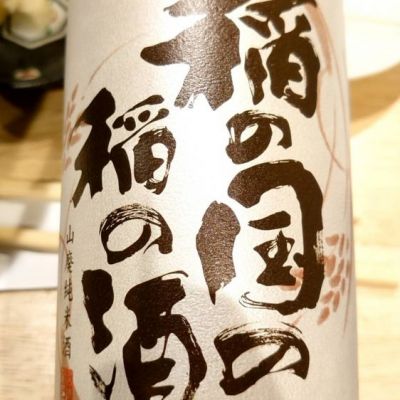 稲の国の
稲の酒
山廃純米酒